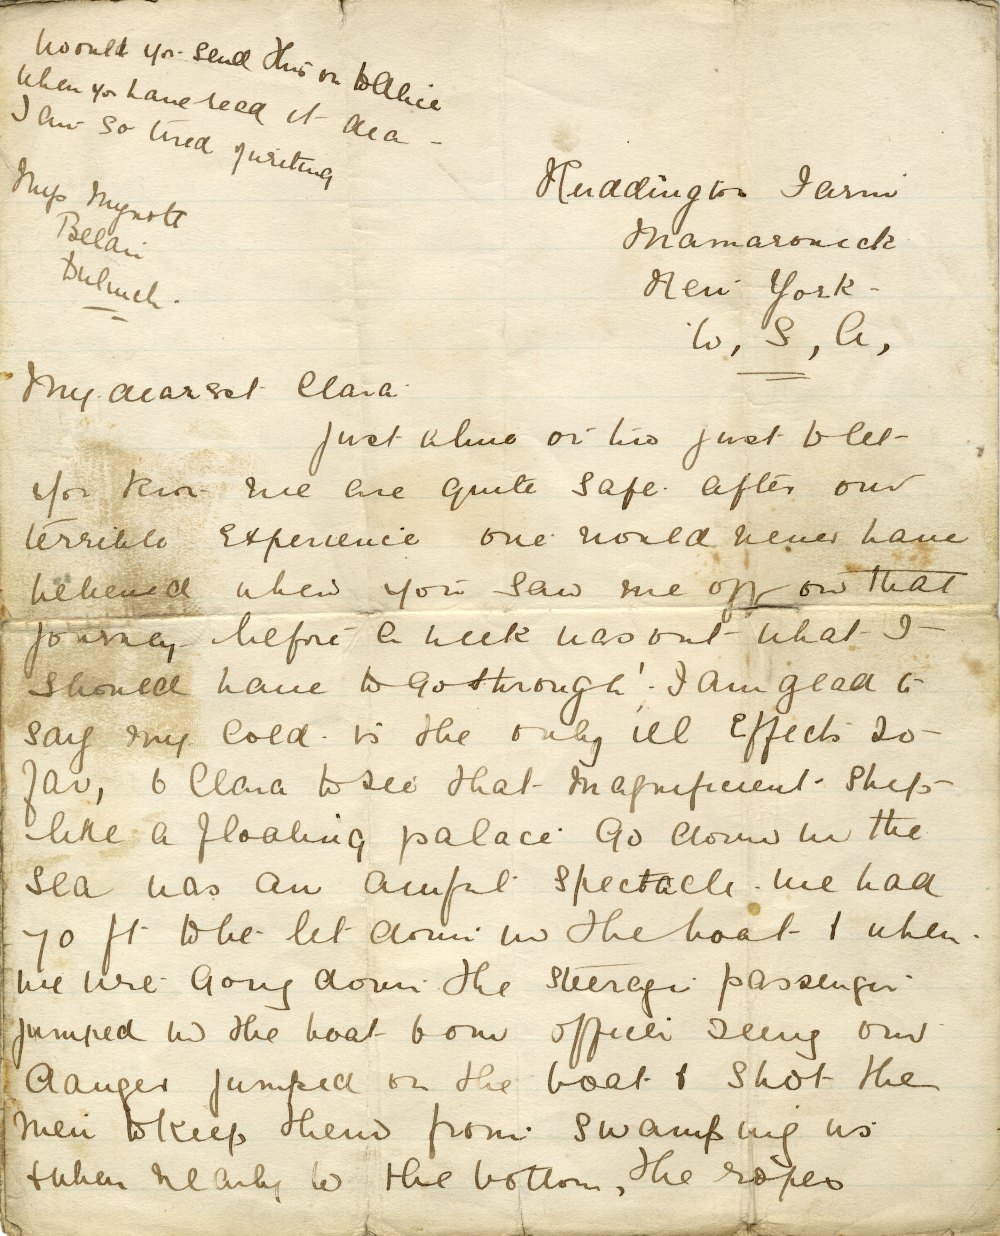 Would you send this on to Alice
when you have read it dea -
I am so tired of writing
Miss Mynott
Belair
Dulwich.
Huddington Farm
Mamaroneck
New York -
U, S, A,
My dearest Clara
just a line or two just to let
you know we are quite safe after our
terrible experience one would never have
believed when you saw me off on that
journey before a week was out what I
should have to go through! I am glad to
say my cold is the only ill effects so
far, O Clara to see that magnificent ship
like a floating palace go down in the
sea was an awful spectacle. we had
70 ft to be let down in the boat & when
we were going down the steerage passenger
jumped in the boat & our officer seeing our
danger jumped in the boat & shot the
men to keep them from swamping us
& when nearly to the bottom, the ropes